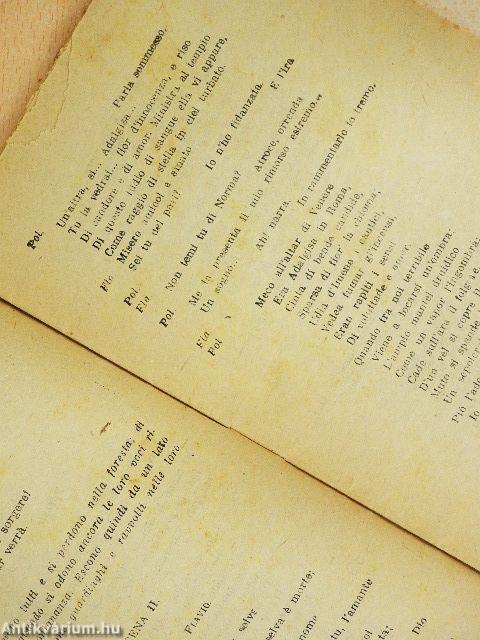 Parla sommesso.
Pol. Un'altra, sì... Adalgisa...
Tu la vedrai... fior d'innocenza, e riso
Di candore e di amor. Ministra al tempio
Di questo Iddio di sangue ella vi appare,
Come raggio di stella in ciel turbato.
Fla Misero amico! e amato
Sei tu del pari?
Pol. Io n'ho fidanza. E l'ira
Fla Non temi tu di Norma?
Pol. Atroce, orrenda
Me la presenta il mio rimorso estremo..
Un sogno;
Fla Ah! narra.
Pol In rammentarlo io tremo.
Meco all'altar di Venere
Era Adalgisa in Roma,
Cinta di bende candide,
Sparsa di fior la chioma;
Udia d'Imene i cantici,
Vedea fumar gl'incensi,
Eran rapiti i sensi
Di voluttade e amore.
Quando tra noi terribile
Viene a locarsi un'ombra:
L'ampio mantel druidico
Come un vapor l'ingombra:
Cade sull'ara il folg
D'un vel si copre il
Muto si spande
Un sepolcr
Più l'ado
Io
sorgere!
verrà.
tutti e si perdono nella foresta; di
do si odono ancora le loro voci ri-
nanza. Escono quindi da un lato
guardinghi e ravvolti nelle loro
ENA II.
FLAVIO.
selve
selva è morte;
nome
tu l'amante
Dio
Antikvarium.hu